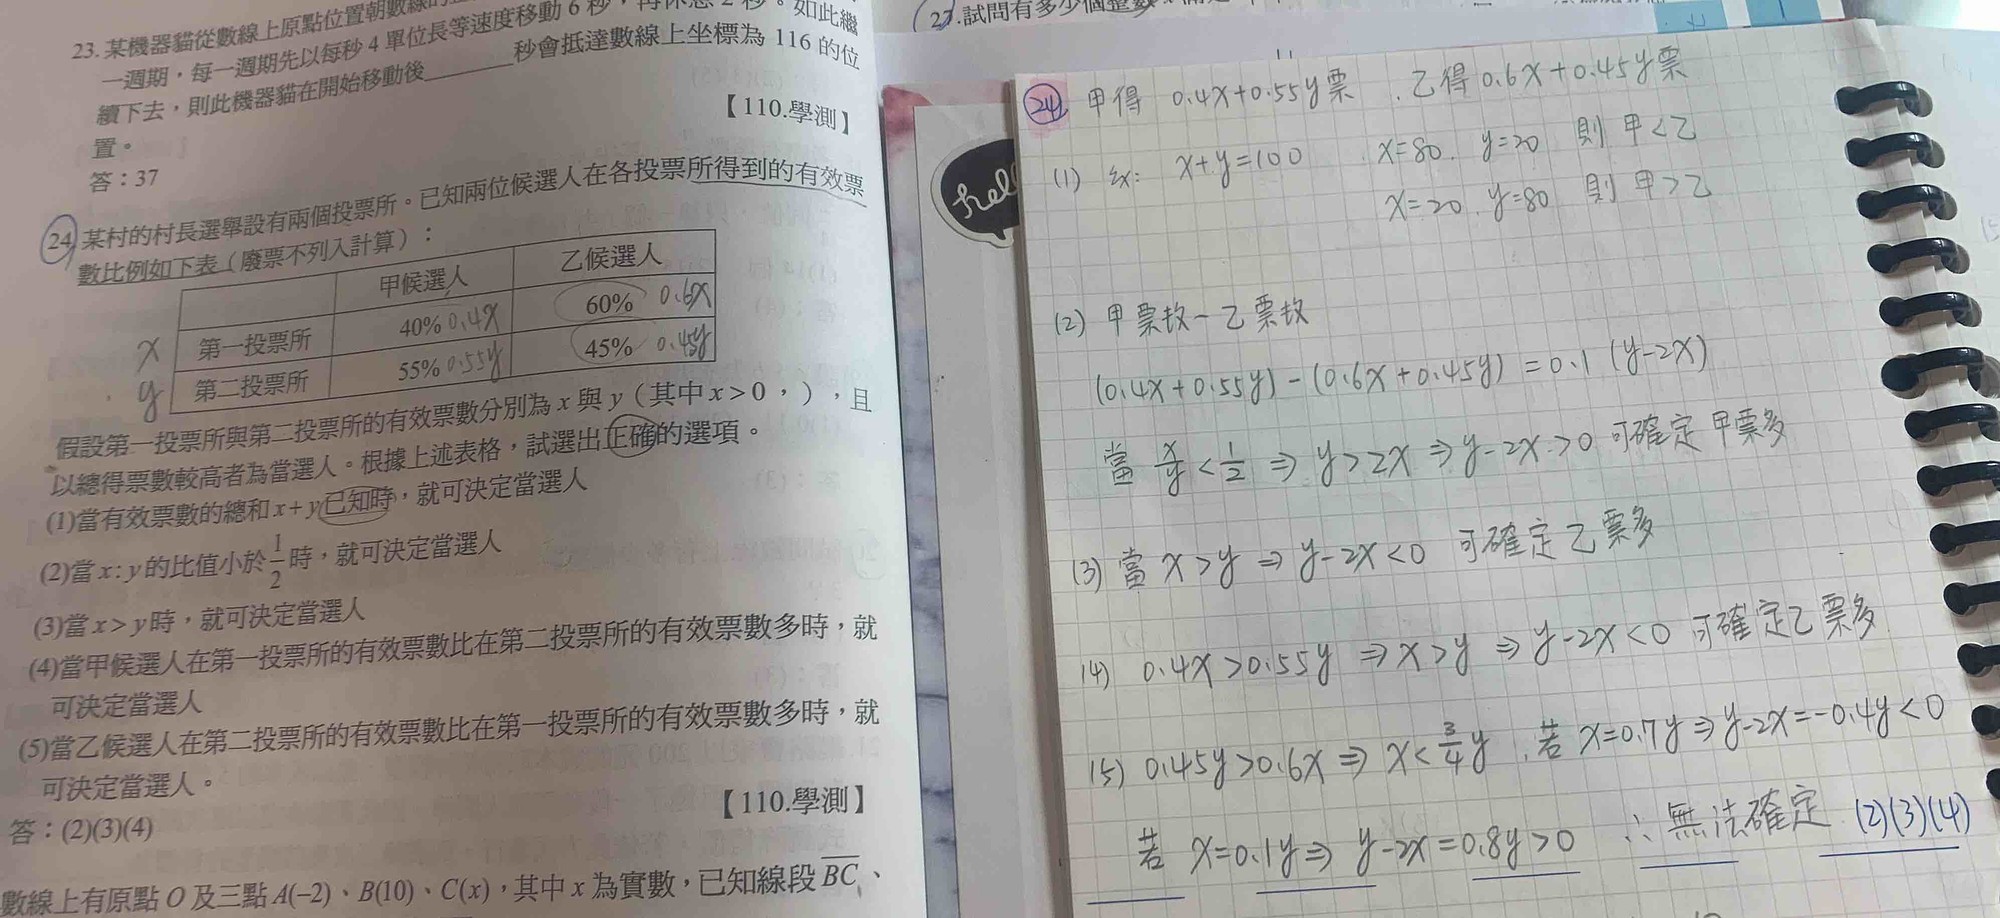 23. 某機器貓從數線上原點位置朝數線的
一週期,每一週期先以每秒 4 單位長等速度移動 6 秒,再休息 2 秒。如此繼
續下去,則此機器貓在開始移動後______秒會抵達數線上坐標為 116 的位
置。
【110.學測】
答:37
24. 某村的村長選舉設有兩個投票所。已知兩位候選人在各投票所得到的有效票
數比例如下表(廢票不列入計算):
甲候選人 乙候選人
x 第一投票所 40% 0.4x 60% 0.6x
y 第二投票所 55% 0.55y 45% 0.45y
假設第一投票所與第二投票所的有效票數分別為 x 與 y(其中 x > 0,),且
以總得票數較高者為當選人。根據上述表格,試選出正確的選項。
(1)當有效票數的總和 x + y 已知時,就可決定當選人
(2)當 x : y 的比值小於 1/2 時,就可決定當選人
(3)當 x > y 時,就可決定當選人
(4)當甲候選人在第一投票所的有效票數比在第二投票所的有效票數多時,就
可決定當選人
(5)當乙候選人在第二投票所的有效票數比在第一投票所的有效票數多時,就
可決定當選人。
【110.學測】
答:(2)(3)(4)
數線上有原點 O 及三點 A(−2)、B(10)、C(x),其中 x 為實數,已知線段 \overline{BC}、
27. 試問有多少個整數
24. 甲得 0.4x+0.55y票 , 乙得 0.6x+0.45y票
(1) ex: x+y=100 , x=80, y=20 則 甲<乙
x=20, y=80 則 甲>乙
(2) 甲票数-乙票数
(0.4x+0.55y)-(0.6x+0.45y)=0.1(y-2x)
當 x/y<1/2 ⇒ y>2x ⇒ y-2x>0 可確定 甲票多
(3) 當 x>y ⇒ y-2x<0 可確定 乙票多
(4) 0.4x>0.55y ⇒ x>y ⇒ y-2x<0 可確定乙票多
(5) 0.45y>0.6x ⇒ x<3/4y , 若 x=0.7y ⇒ y-2x=-0.4y<0
若 x=0.1y ⇒ y-2x=0.8y>0 ∴無法確定 (2)(3)(4)